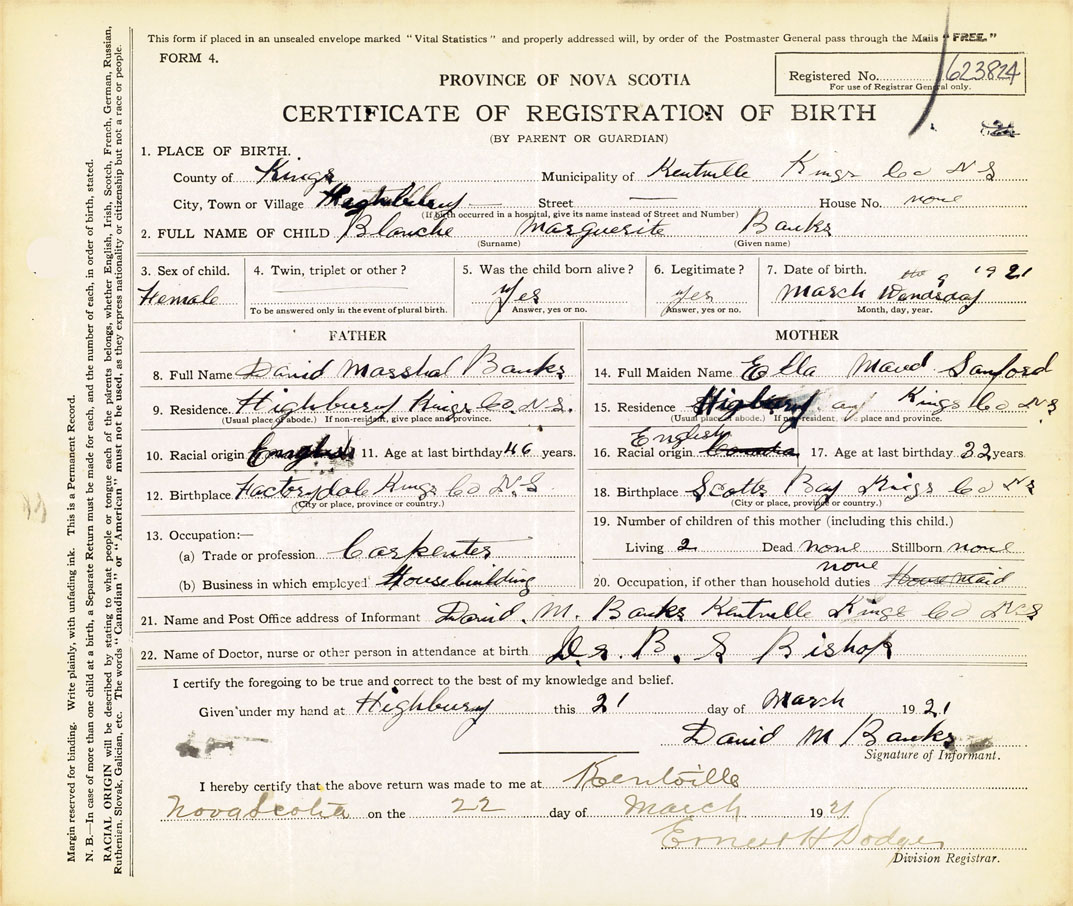 This form if placed in an unsealed envelope marked "Vital Statistics" and properly addressed will, by order of the Postmaster General pass through the Mails "FREE."
FORM 4.
Registered No. 623824
For use of Registrar General only.
PROVINCE OF NOVA SCOTIA
CERTIFICATE OF REGISTRATION OF BIRTH
(BY PARENT OR GUARDIAN)
1. PLACE OF BIRTH.
County of Kings Municipality of Kentville Kings Co N S
City, Town or Village Street House No. none
(If birth occurred in a hospital, give its name instead of Street and Number)
2. FULL NAME OF CHILD Blanche Marguerite Banks
(Surname) (Given name)
3. Sex of child. Female
4. Twin, triplet or other?
To be answered only in the event of plural birth.
5. Was the child born alive? Yes
Answer, yes or no.
6. Legitimate? yes
Answer, yes or no.
7. Date of birth. 9 1921
March Wendsday
Month, day, year.
FATHER
8. Full Name David Marshal Banks
9. Residence Highbury Kings Co. N.S.
(Usual place of abode.) If non-resident, give place and province.
10. Racial origin 11. Age at last birthday 46 years.
12. Birthplace Factorydale Kings Co N.S
(City or place, province or country.)
13. Occupation:—
(a) Trade or profession Carpenter
(b) Business in which employed Housebuilding
MOTHER
14. Full Maiden Name Ella Maud Sanford
15. Residence Kings Co N S
(Usual place of abode.) If non-resident, give place and province.
English
16. Racial origin Canada 17. Age at last birthday 32 years.
18. Birthplace Scotts Bay Kings Co N S
(City or place, province or country.)
19. Number of children of this mother (including this child.)
Living 2 Dead none Stillborn none
none
20. Occupation, if other than household duties House maid
21. Name and Post Office address of Informant David. M. Banks Kentville Kings Co N.S
22. Name of Doctor, nurse or other person in attendance at birth Dr. B. S Bishop
I certify the foregoing to be true and correct to the best of my knowledge and belief.
Given under my hand at Highbury this 21 day of March 1921
David M Banks
Signature of Informant.
I hereby certify that the above return was made to me at Kentville
Nova Scotia on the 22 day of March 1921
Ernest H Dodge
Division Registrar.
Margin reserved for binding. Write plainly, with unfading ink. This is a Permanent Record.
N. B.—In case of more than one child at a birth, a Separate Return must be made for each, and the number of each, in order of birth, stated.
RACIAL ORIGIN will be described by stating to what people or tongue each of the parents belongs, whether English, Irish, Scotch, French, German, Russian,
Ruthenian, Slovak, Galician, etc. The words "Canadian" or "American" must not be used, as they express nationality or citizenship but not a race or people.